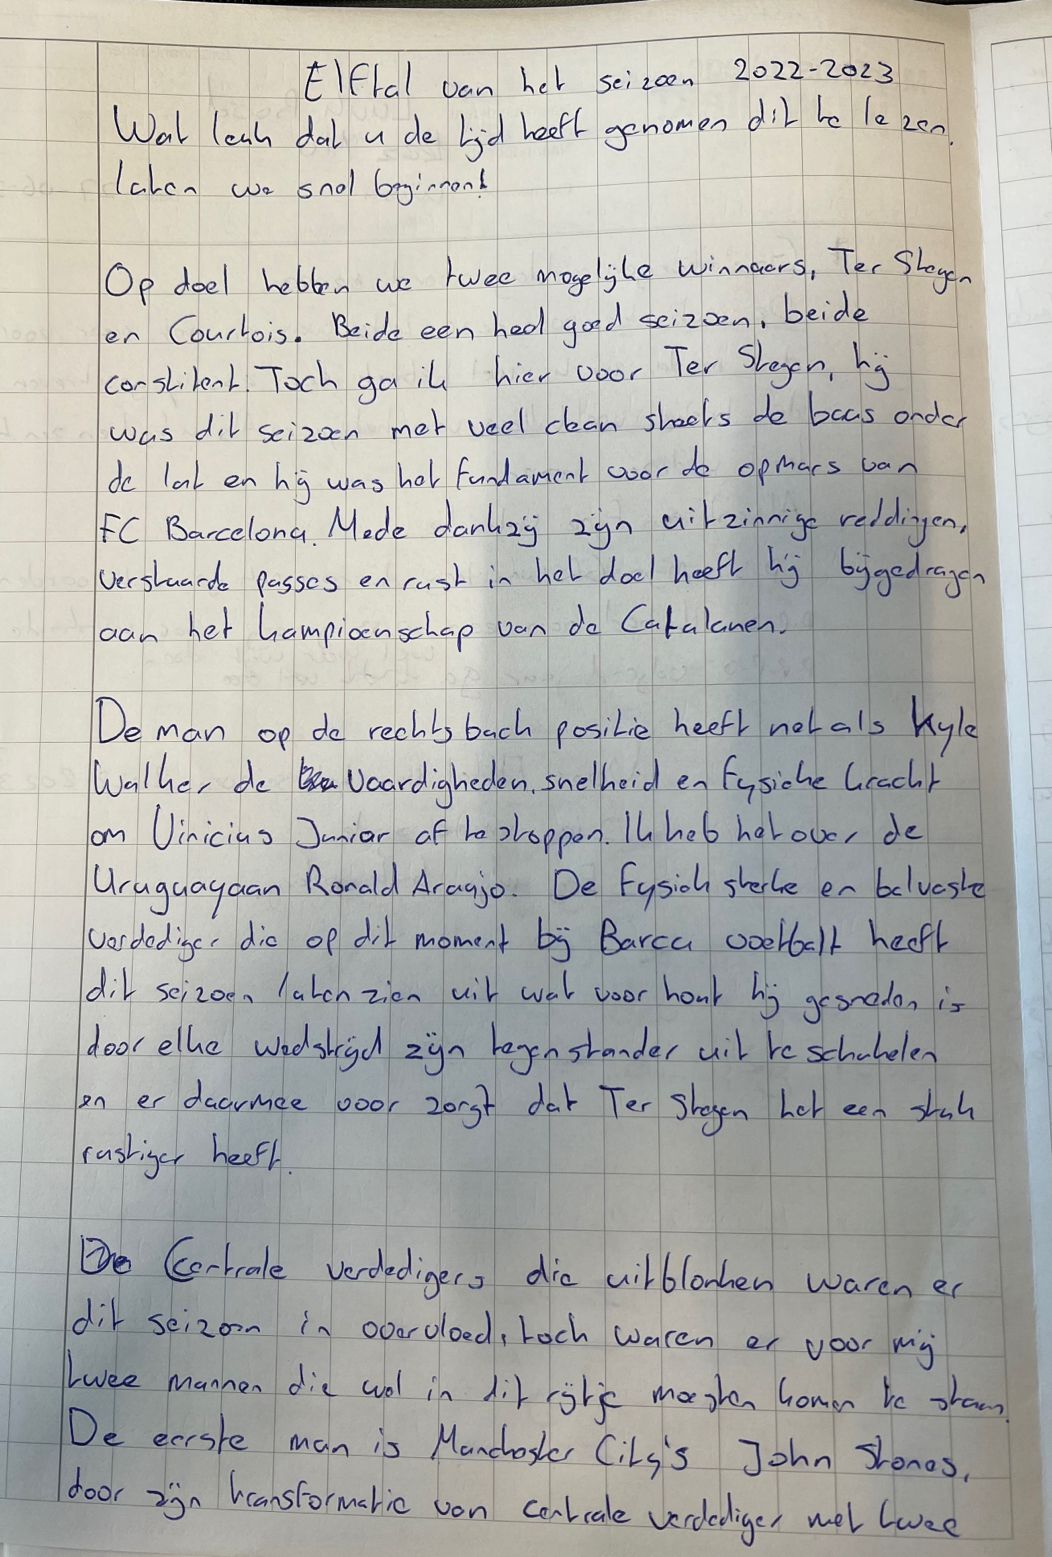 Elftal van het seizoen 2022-2023
Wat leuk dat u de tijd heeft genomen dit te lezen.
laten we snel beginnen!
Op doel hebben we twee mogelijke winnaars, Ter Stegen
en Courtois. Beide een heel goed seizoen, beide
constitent. Toch ga ik hier voor Ter Stegen, hij
was dit seizoen met veel clean sheets de baas onder
de lat en hij was het fundament voor de opmars van
FC Barcelona. Mede dankzij zijn uitzinnige reddingen,
verstuurde passes en rust in het doel heeft hij bijgedragen
aan het kampioenschap van de Catalanen.
De man op de rechtsback positie heeft net als Kyle
Walker de vaardigheden, snelheid en fysiche kracht
om Vinicius Junior af te stoppen. Ik heb het over de
Uruguayaan Ronald Araujo. De fysich sterke en balvaste
verdediger die op dit moment bij Barca voetbalt heeft
dit seizoen laten zien uit wat voor hout hij gesneden is
door elke wedstrijd zijn tegenstander uit te schakelen
en er daarmee voor zorgt dat Ter Stegen het een stuk
rustiger heeft.
De Centrale verdedigers die uitblonken waren er
dit seizoen in overvloed, toch waren er voor mij
twee mannen die wel in dit rijtje moesten komen te staan.
De eerste man is Manchester City's John Stones,
door zijn transformatie van centrale verdediger met twee